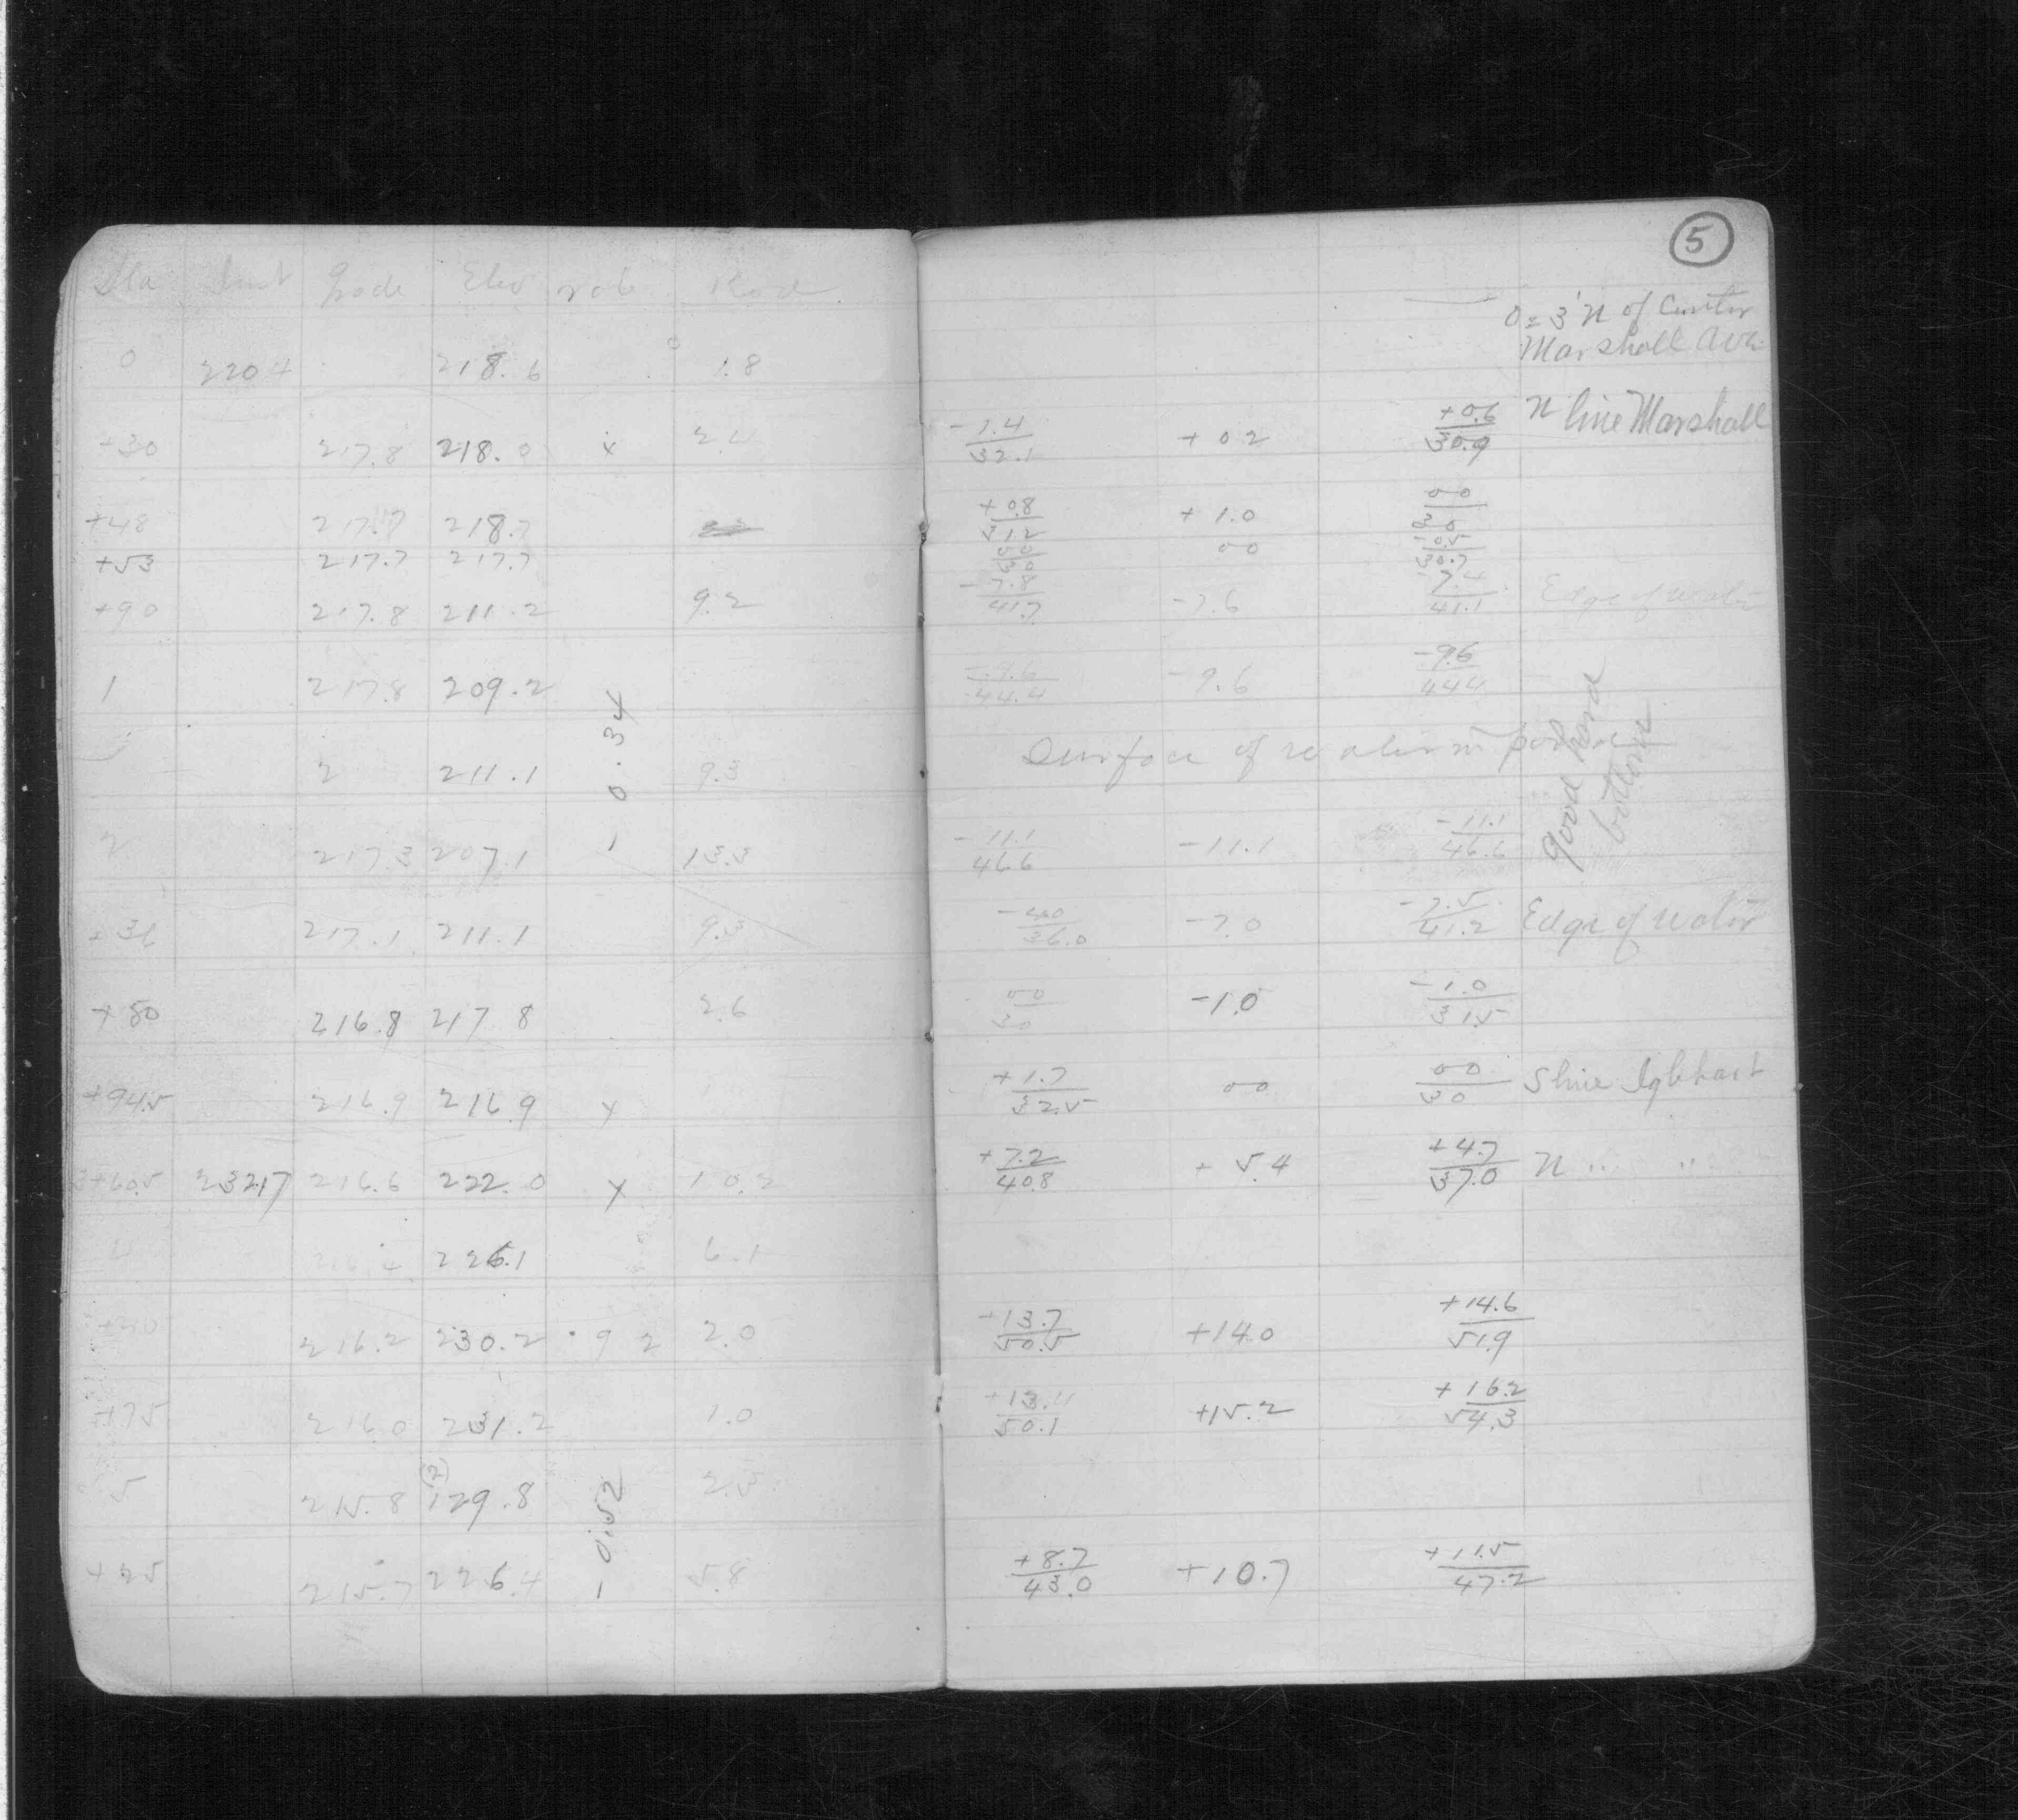 5
Sta Inst Grade Elev rate Rod
0 = 3' N of Center
Marshall Ave.
0 220.4 218.6 1.8
+30 217.8 218.0 x 2.4 -1.4/32.1 +0.2 +0.6/30.9 N line Marshall
+48 217.7 218.7 +0.8/31.2 +1.0 00/30
+53 217.7 217.7 00/30 00 +0.5/30.7
+90 217.8 211.2 9.2 -7.8/41.7 -7.6 -7.4/41.1 Edge of water
1 217.8 209.2 -9.6/44.4 -9.6 -9.6/44.4
211.1 9.3 Surface of water in
good hard
bottom
- 0.34
2 217.3 207.1 13.3 -11.1/46.6 -11.1 -11.1/46.6
+36 217.1 211.1 9.3 -4.0/36.0 -7.0 -7.5/41.2 Edge of water
+80 216.8 217.8 2.6 00/30 -1.0 -1.0/31.5
+94.5 216.9 216.9 x +1.7/32.5 00 00/30 S line Iglehart
3+60.5 232.17 216.6 222.0 x 10.2 +7.2/40.8 +5.4 +4.7/37.0 N " "
4 216.4 226.1 6.1
+40 216.2 230.2 2.0 +13.7/50.5 +14.0 +14.6/51.9
+75 216.0 231.2 1.0 +13.4/50.1 +15.2 +16.2/54.3
5 215.8 (2) 129.8 2.3
- 0.52
+25 215.7 226.4 5.8 +8.7/43.0 +10.7 +11.5/47.2